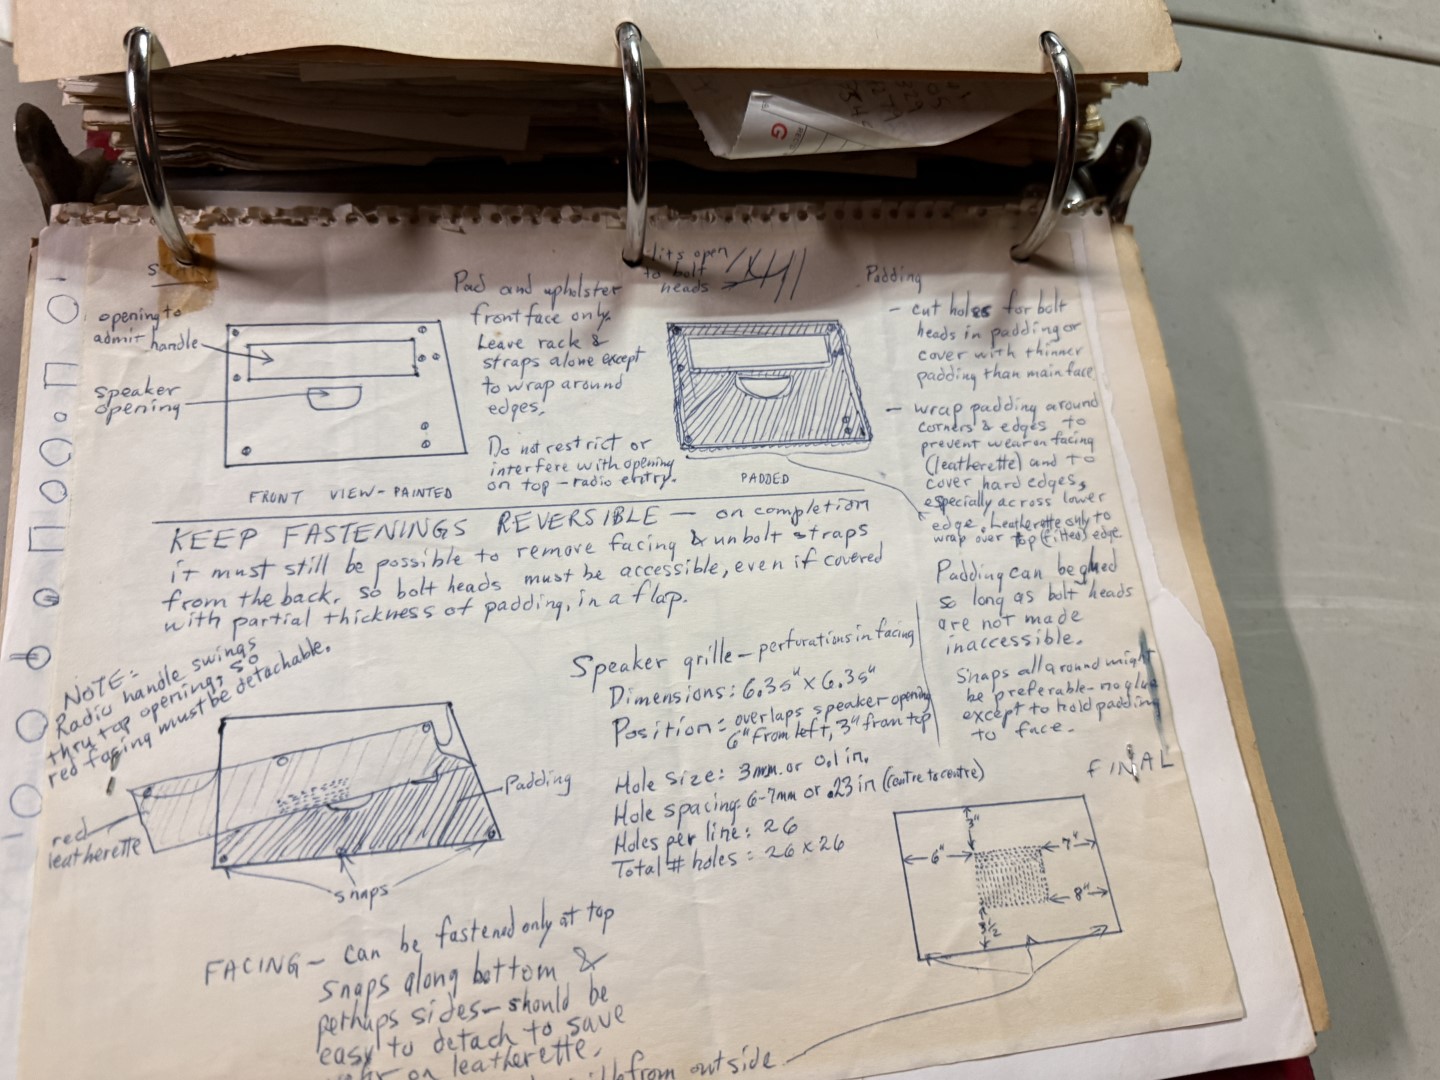 opening to
admit handle
speaker
opening
FRONT VIEW-PAINTED
Pad and upholster
front face only.
Leave rack &
straps alone except
to wrap around
edges.
Do not restrict or
interfere with opening
on top - radio entry.
slits open
to bolt
heads
PADDED
Padding
- cut holes for bolt
heads in padding or
cover with thinner
padding than main face
- wrap padding around
corners & edges to
prevent wear on facing
(leatherette) and to
cover hard edges,
especially across lower
edge. Leatherette only to
wrap over top (fitted) edge
Padding can be glued
so long as bolt heads
are not made
inaccessible.
Snaps all around might
be preferable - no glue
except to hold padding
to face.
KEEP FASTENINGS REVERSIBLE - on completion
it must still be possible to remove facing & unbolt straps
from the back, so bolt heads must be accessible, even if covered
with partial thickness of padding, in a flap.
NOTE:
Radio handle swings
thru top opening, so
red facing must be detachable.
red
leatherette
Padding
snaps
Speaker grille - perforations in facing
Dimensions: 6.35" x 6.35"
Position: overlaps speaker opening
6" from left, 3" from top
Hole size: 3mm. or 0.1 in.
Hole spacing: 6-7mm or .23 in (centre to centre)
Holes per line: 26
Total # holes: 26 x 26
FINAL
3"
6"
7"
8"
3 1/2
FACING - can be fastened only at top
snaps along bottom &
perhaps sides - should be
easy to detach to save
on leatherette.
from outside